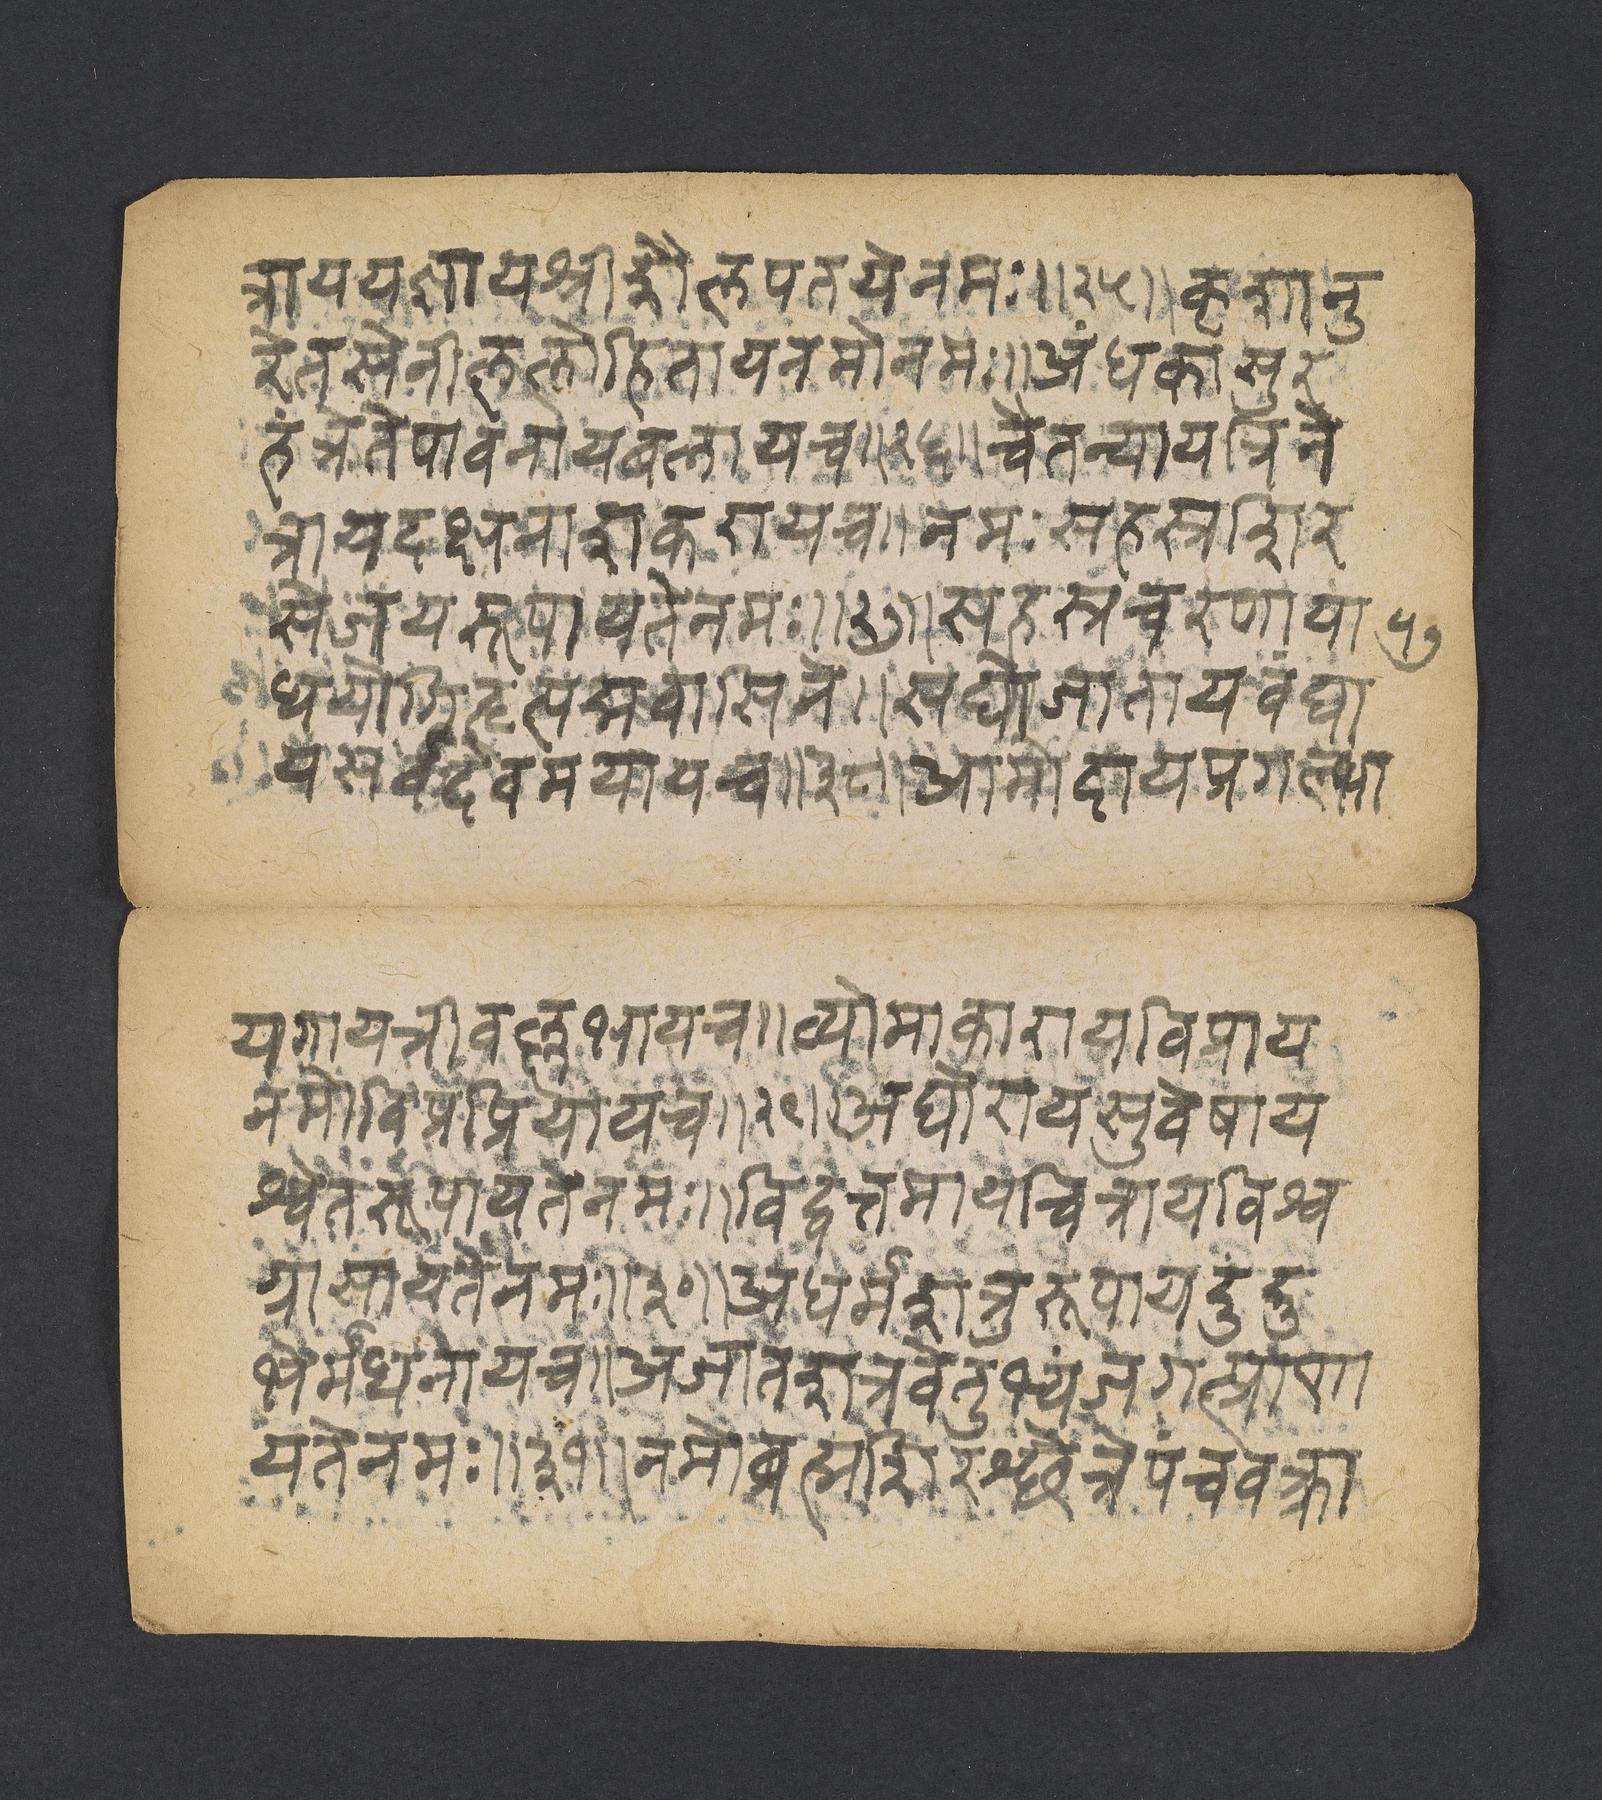 त्राययज्ञायश्रीशैलपतयेनमः॥२५॥कृशानु
रेतसेनीललोहितायनमोनमः॥अंधकासुर
हंत्रेतेपावनायबलायच॥२६॥चैतन्यायत्रिने
त्रायदक्षनाशकरायच॥नमःसहस्रशिर
सेजयरूपायतेनमः॥२७॥सहस्रचरणाया
५७
थयोगिहृत्पद्मवासिने॥सद्योजातायवंद्या
यसर्वदेवमयायच॥२८॥आमोदायप्रगल्भा
यगायत्रीवल्लभायच॥व्योमाकारायविप्राय
नमोविप्रप्रियायच॥२९॥अघोरायसुवेषाय
श्वेतरूपायतेनमः॥विद्वत्तमायचित्रायविश्व
ग्रासायतेनमः॥३०॥अधर्मशत्रुरूपायदुंदु
भेर्मथनायच॥अजातशत्रवेतुभ्यंजगत्प्राणा
यतेनमः॥३१॥नमोब्रह्मशिरश्छेत्रेपंचवक्त्रा